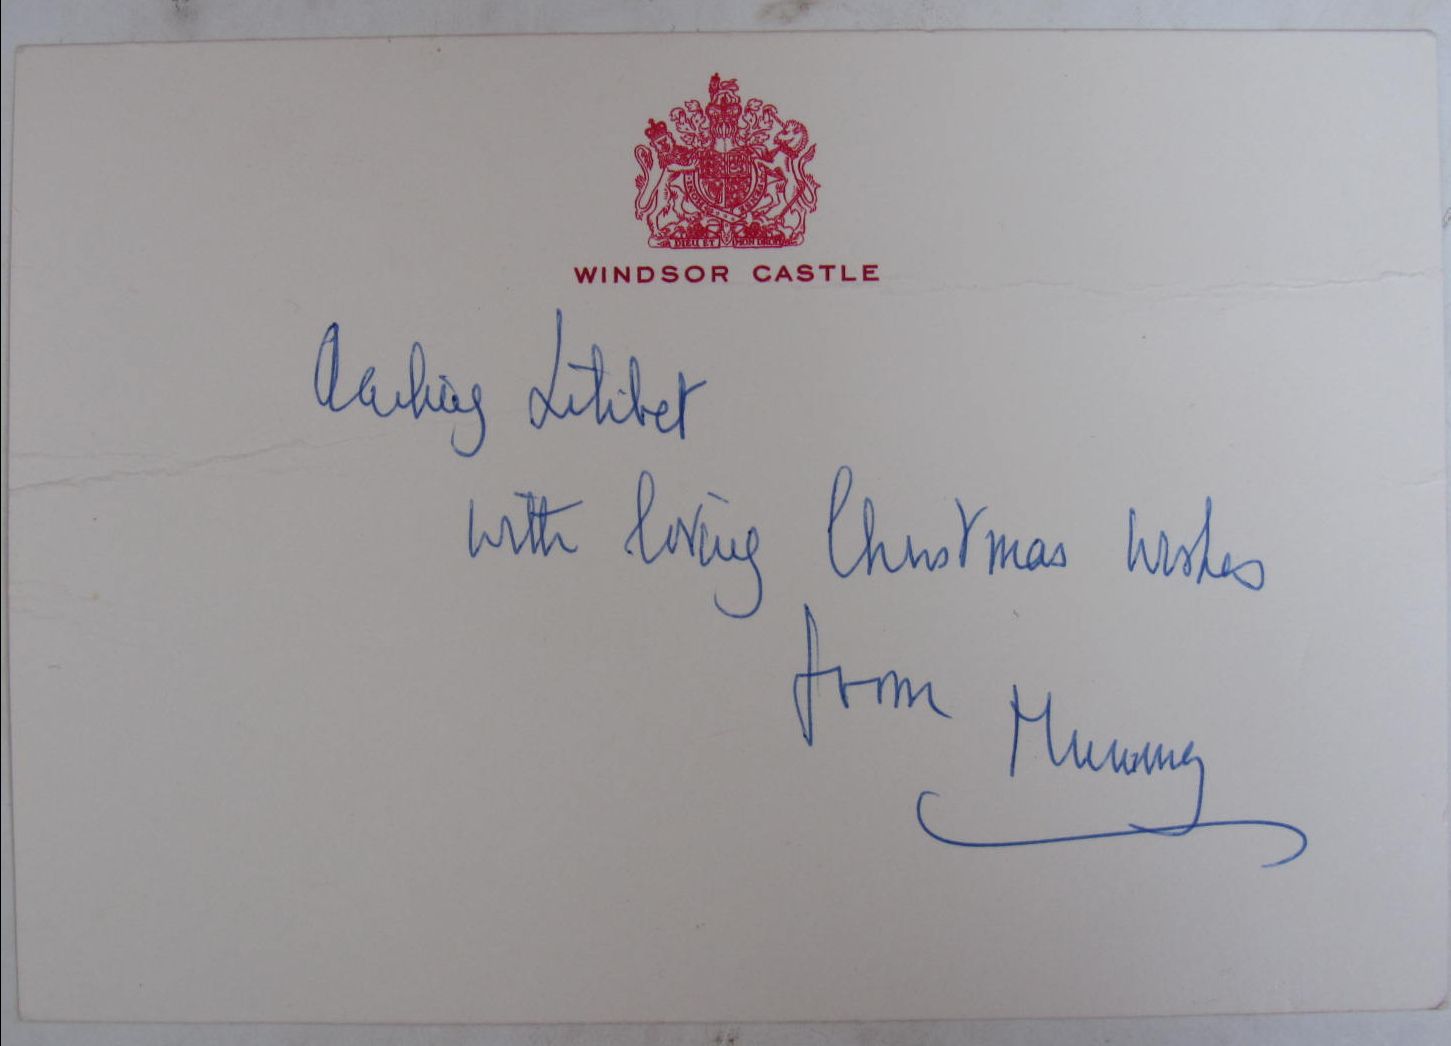 DIEU ET MON DROIT
WINDSOR CASTLE
darling Lilibet
with loving Christmas wishes
from Mummy